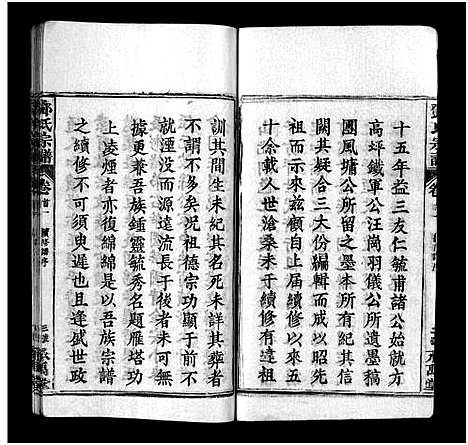 十五年益三友仁毓甫諸公等
高坪鐵軍公汪崗羽儀公所遺墨稿
團風塘公所留之墨本所創而
闕共疑倂三大份編輯而成以昭先
祖而示後自上屆續修以來五
十餘年世世滄桑未于續修有達祖
訓其間生未紀其名死未詳其葬者
不謂不多矣况祖德宗功顯于前不
就湮没而源遠流長于後者未可無
據更兼吾族鍾靈毓秀名題雁塔功
上凌煙者亦復綿綿是以吾族宗譜
之續修不可須臾遲也且逢盛世政
鄧氏宗譜
卷首一
續修譜序